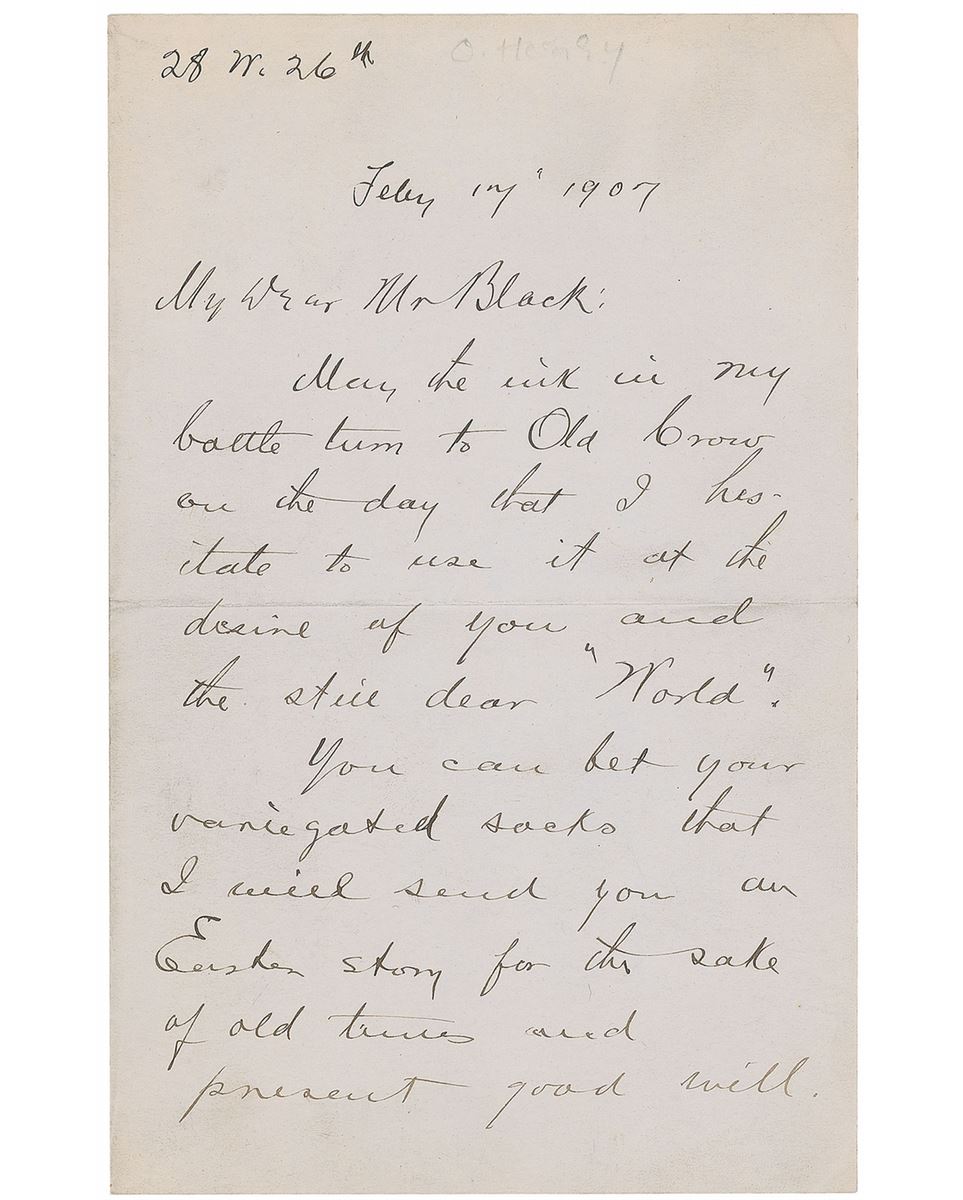 28 W. 26th O. Henry
Feby 17" 1907
My Dear Mr Black:
May the ink in my
bottle turn to Old Crow
on the day that I hes-
itate to use it at the
desire of you and
the still dear "World".
You can bet your
variegated socks that
I will send you an
Easter story for the sake
of old times and
present good will.